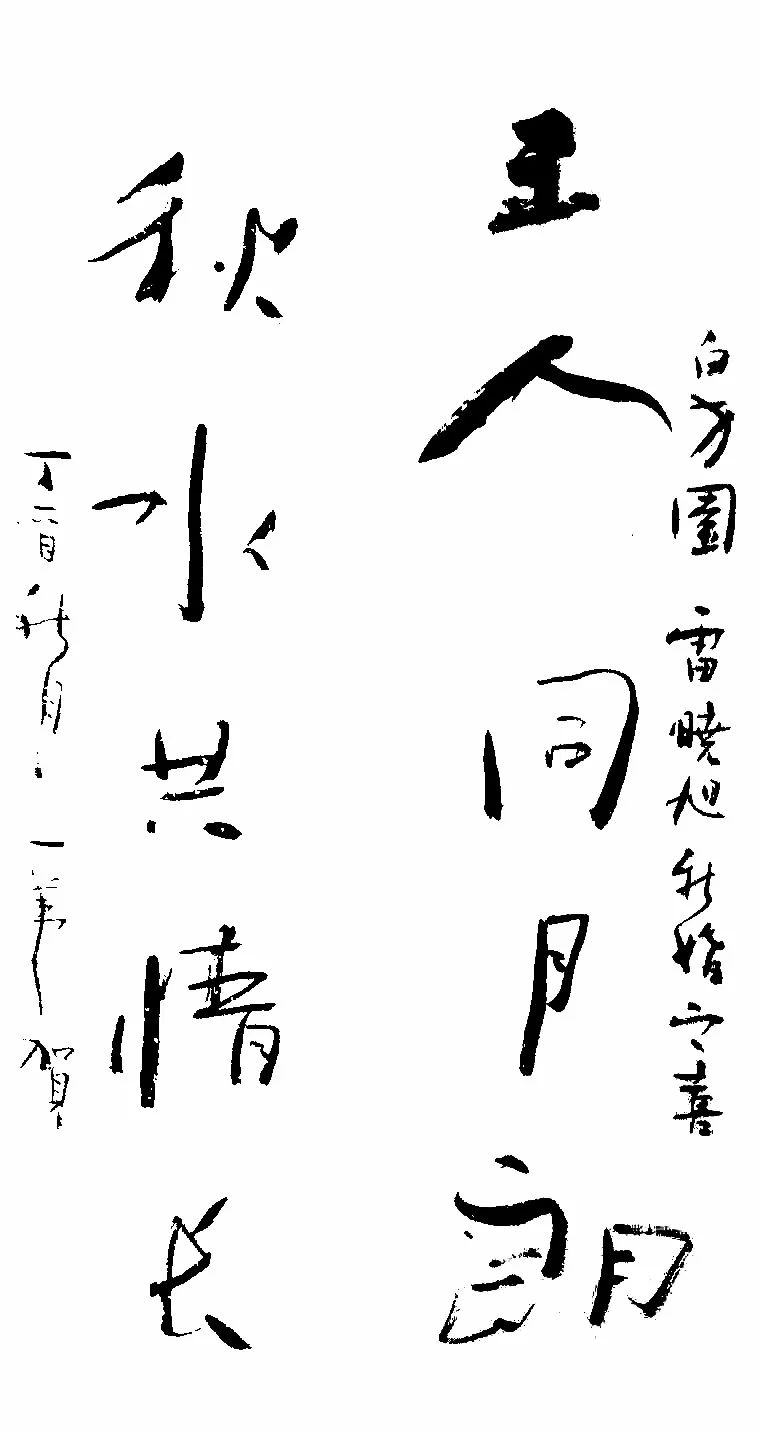 白芳園 雷暁旭 新婚之喜
玉人同月朗
秋水共情长
丁酉秋月 一 賀